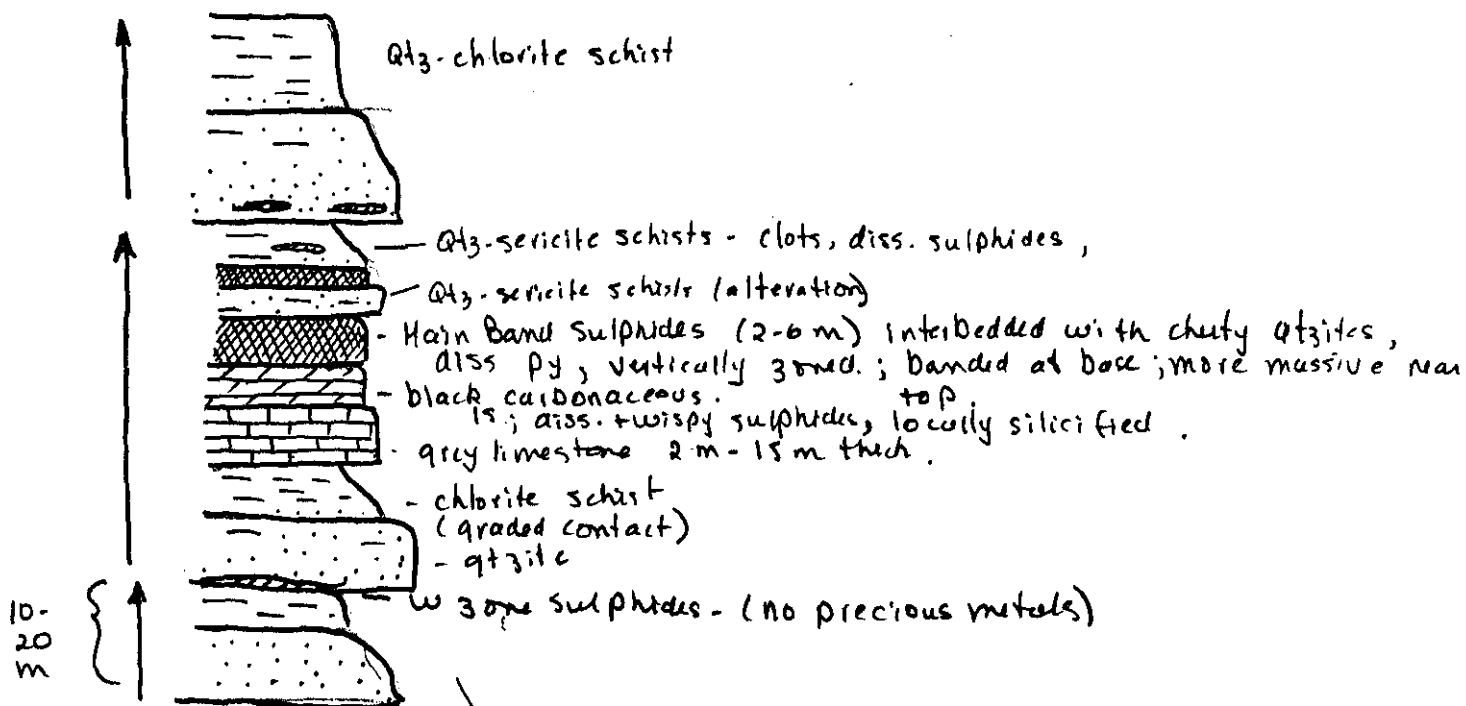 Qtz-chlorite schist
Qtz-sericite schists - clots, diss. sulphides,
Qtz-sericite schists (alteration)
- Main Band Sulphides (2-6 m) interbedded with cherty qtzites,
diss py, vertically zoned. ; banded at base ; more massive near
top.
- black carbonaceous.
ls ; diss. + wispy sulphides, locally silicified.
- grey limestone 2 m - 15 m thick.
- chlorite schist
(graded contact)
- qtzite
W zone sulphides - (no precious metals)
10-
20
m